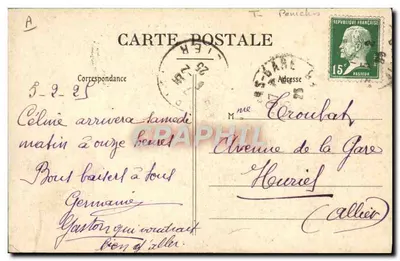 A
CARTE POSTALE
RÉPUBLIQUE FRANÇAISE
15c
PASTEUR
Correspondance
Adresse
5-2-25
Céline arrivera samedi
matin à onze heures
Bons baisers à tous
Germaine
Gaston qui voudrait
bien y aller.
Mme Troubat
Avenue de la Gare
Huriel
(Allier)
cartes-postales